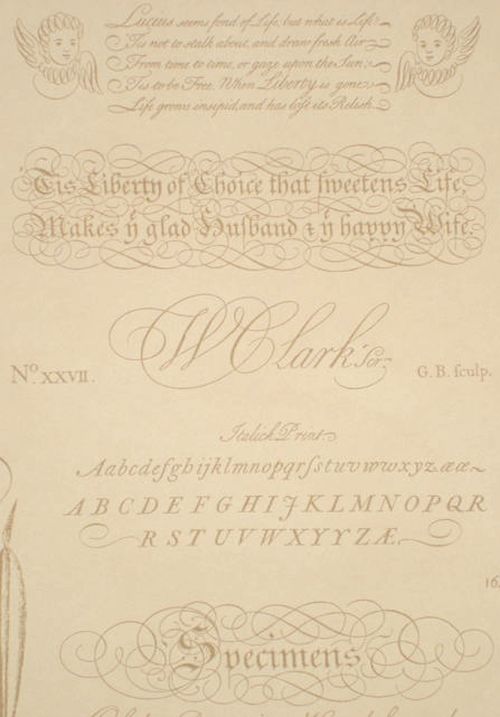 Lucius seems fond of Life, but what is Life?
'Tis not to stalk about, and draw fresh Air
From time to time, or gaze upon the Sun:
'Tis to be Free. When Liberty is gone,
Life grows insipid, and has lost its Relish.
'Tis Liberty of Choice that ſweetens Life,
Makes ẏ glad Huſband & ẏ happy Wife.
W Clark Scr.
No. XXVII.
G. B. ſculp.
Italick Print
Aabcdefghijklmnopqrſstuvwwxyzææ
ABCDEFGHIJKLMNOPQR
RSTUVWXYYZÆ
16
Specimens